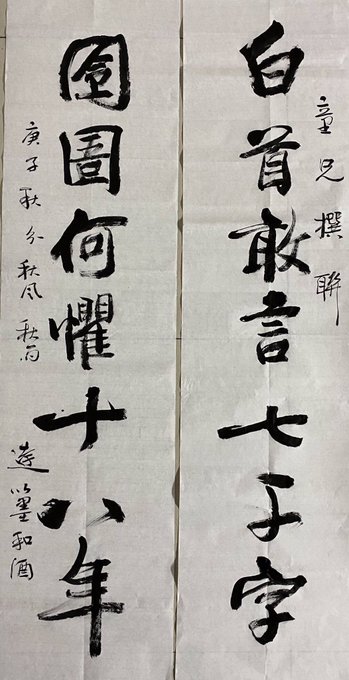 白首敢言七千字
童兄撰聯
囹圄何懼十八年
庚子秋分秋风秋雨
墨和酒